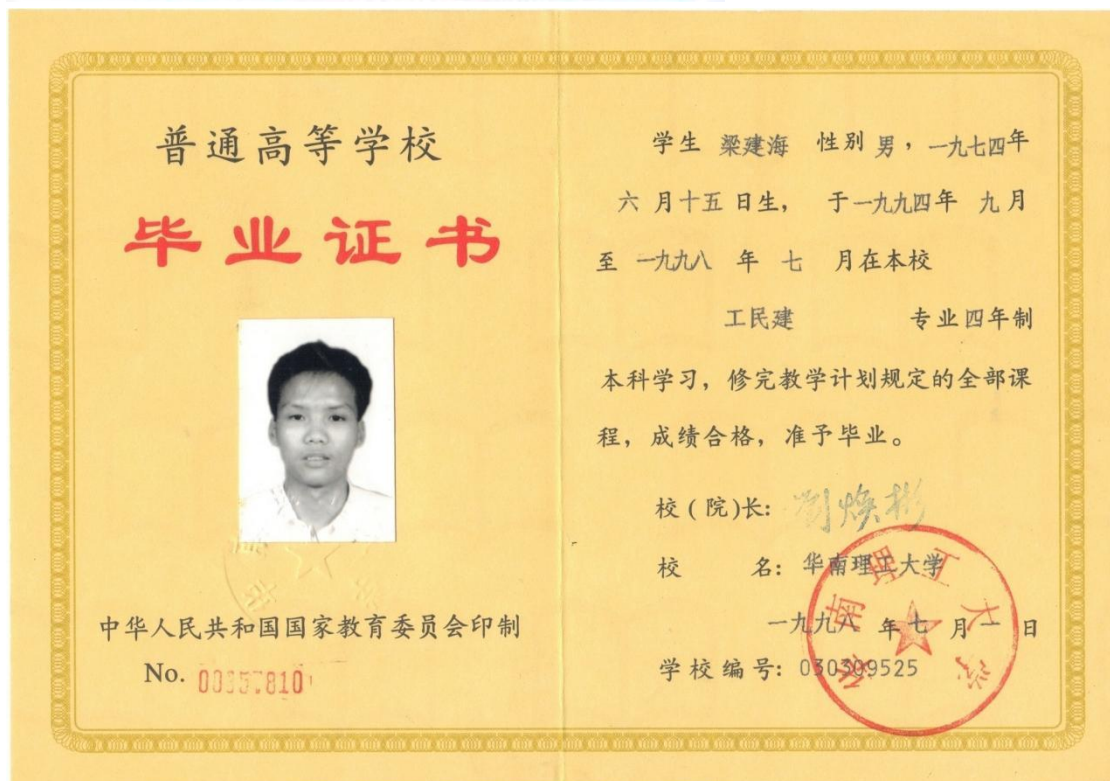 普通高等学校
毕业证书
中华人民共和国国家教育委员会印制
No. 00357810
学生 梁建海 性别 男，一九七四年
六 月十五 日生， 于一九九四年 九月
至 一九九八 年 七 月在本校
工民建 专业四年制
本科学习，修完教学计划规定的全部课
程，成绩合格，准予毕业。
校(院)长: 刘焕彬
校 名: 华南理工大学
一九九八 年 七 月 一 日
学校编号: 030309525
华南理工大学